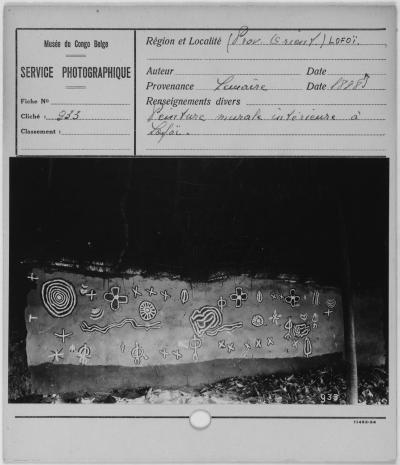 Musée du Congo Belge
SERVICE PHOTOGRAPHIQUE
Fiche No
Cliché : 933
Classement :
Région et Localité (Prov. Orient.) LOFOÏ.
Auteur Date
Provenance Lemaire Date
Renseignements divers
Peinture murale intérieure à
Lofoï.
T
933